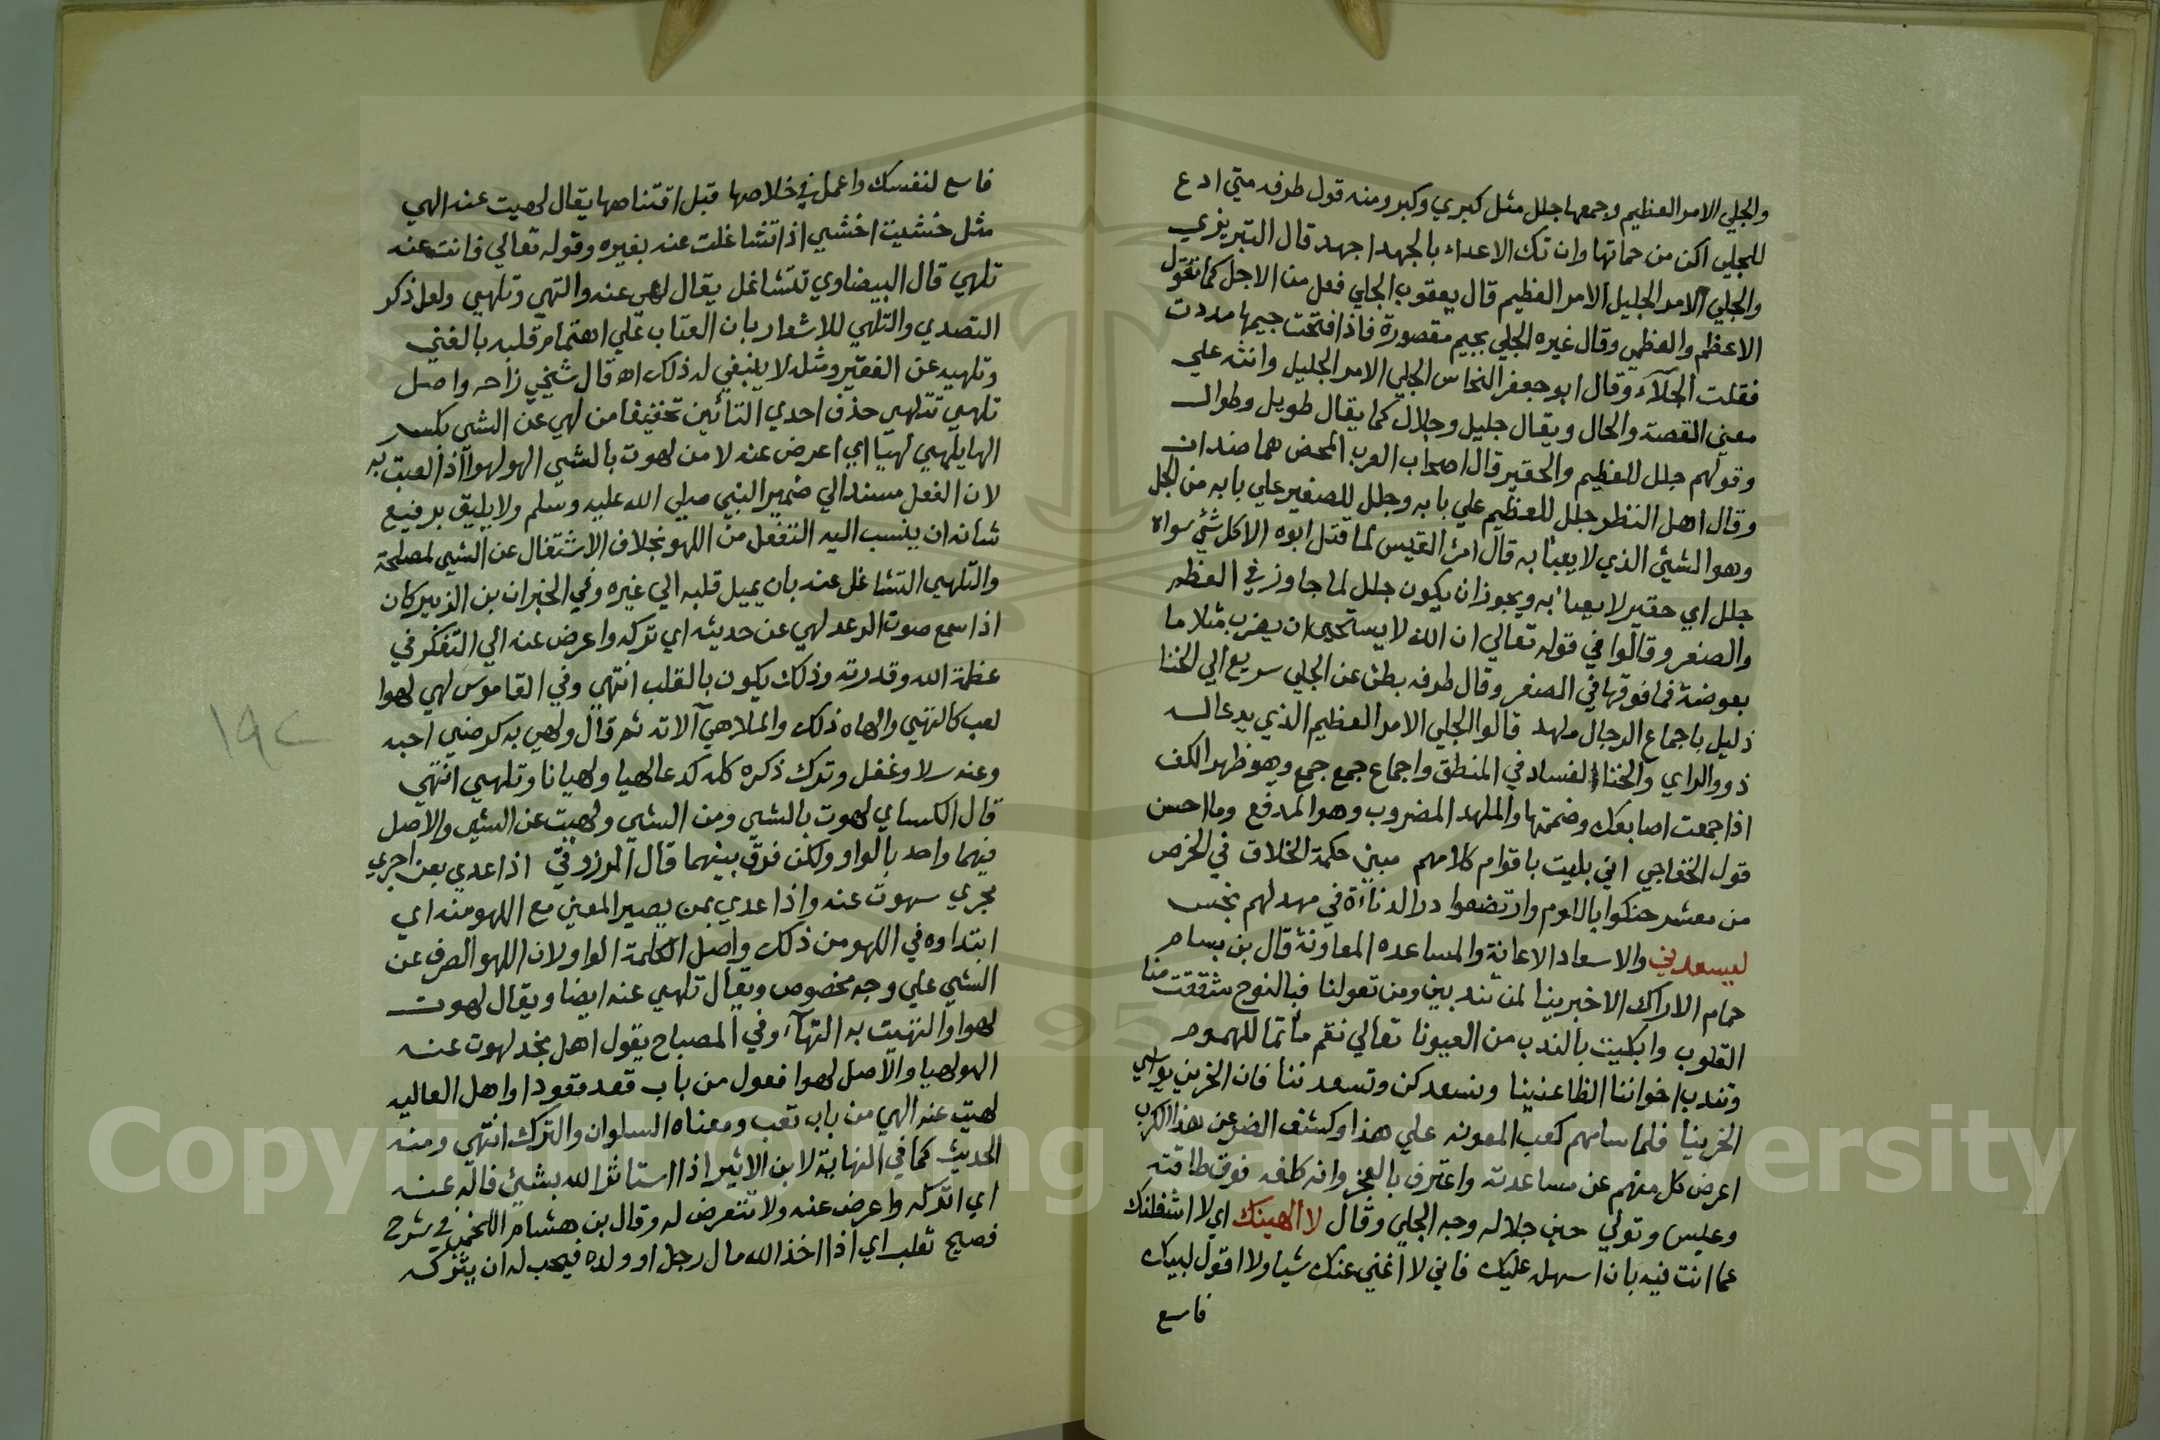 والجلي الامر العظيم وجمعها جلل مثل كبري وكبر ومنه قول طرفه متي ادع
للجلي اكن من حماتها وان تك الاعداء بالجهد اجهد قال التبريزي
والجلي الامر الجليل الامر العظيم قال يعقوب الجلي فعل من الاجل كما تقول
الاعظم والعظمي وقال غيره الجلي بجيم مقصورة فاذا فتحت جيمها مددت
فقلت الجلآء وقال ابو جعفر النحاس الجلي الامر الجليل وانثه علي
معني القصة والحال ويقال جليل وجلال كما يقال طويل وطوال
وقولهم جلل للعظيم والحقير قال اصحاب العرب المحض هما ضدان
وقال اهل النظر جلل للعظيم علي بابه وجلل للصغير علي بابه من الجل
وهو الشيئ الذي لا يعبأ به قال امرئ القيس لما قتل ابوه الا كل شئ سواه
جلل اي حقير لا يعبا به ويجوز ان يكون جلل لما جاوز في العظم
والصغر وقالوا في قوله تعالي ان الله لا يستحيي ان يضرب مثلا ما
بعوضة فما فوقها في الصغر وقال طرفه بطئ عن الجلي سريع الي الخنا
ذليل باجماع الرجال ملهد قالوا الجلي الامر العظيم الذي يدعا له
ذووالراي والخنا الفساد في المنطق واجماع جمع جمع وهو ظهر الكف
اذا جمعت اصابعك وضممتها والملهد المضروب وهو المدفع وما احسن
قول الخفاجي اني بليت باقوام كلامهم مبين حكمة الخلاق في الخرص
من معشر حنكوا باللوم وارتضعوا در الدناءة في مهد لهم نجس
ليسعدني والاسعاد الاعانة والمساعده المعاونة قال بن بسام
حمام الاراك الا خبرينا لمن تندبين ومن تعولنا فبالنوح شققت منا
القلوب وابكيت بالندب من العيونا تعالي نقم مأتما للهموم
وتندب اخواننا الظاعنينا ونسعدكن وتسعدننا فان الحزين يواسي
الحزينا فلما سامهم كعب المعونه علي هذا وكشف الضر عن هذا الكرب
اعرض كل منهم عن مساعدته واعترف بالعجز وانه كلفه فوق طاقته
وعبس وتولي حين جلا له وجه الجلي وقال لا الهينك اي لا اشغلنك
عما انت فيه بان اسهل عليك فاني لا اغني عنك شيا ولا اقول لبيك
فاسع
فاسع لنفسك واعمل في خلاصها قبل اقتناصها يقال لهيت عنه الهي
مثل خشيت اخشي اذا تشاغلت عنه بغيره وقوله تعالي فانت عنه
تلهي قال البيضاوي تتشاغل يقال لهي عنه والتهي وتلهي ولعل ذكر
التصدي والتلهي للاشعار بان العتاب علي اهتمام قلبه بالغني
وتلهيه عن الفقير ومثله لا ينبغي له ذلك اه قال شيخي زاحه واصل
تلهي تتلهي حذف احدي التائين تخفيفا من لهي عن الشي بكسر
الها يلهي لهيا اي اعرض عنه لا من لهوت بالشي الهو لهوا اذا لعبت به
لان الفعل مسند الي ضمير النبي صلي الله عليه وسلم ولا يليق برفيع
شانه ان ينسب اليه التفعل من اللهو بخلاف الاشتغال عن الشي لمصلحة
والتلهي التشاغل عنه بان يميل قلبه الي غيره وفي الخبر ان بن الزبير كان
اذا سمع صوت الرعد لهي عن حديثه اي تركه واعرض عنه الي التفكر في
عظمة الله وقدرته وذلك يكون بالقلب انتهي وفي القاموس لهي لهوا
لعب كالتهي والهاه ذلك والملاهي آلاته ثم قال ولهي به كرضي احبه
وعنه سلا وغفل وترك ذكره كله كدعا لهيا ولهيانا وتلهي انتهي
قال الكساي لهوت بالشي ومن الشي ولهيت عن الشي والاصل
فيهما واحد بالواو ولكن فرق بينهما قال المرزوقي اذا عدي بعن اجري
مجري سهوت عنه واذا عدي بمن يصير المعني مع اللهو منه اي
ابتداوه في اللهو من ذلك واصل الكلمة الواو لان اللهو الصرف عن
الشي علي وجه مخصوص ويقال تلهي عنه ايضا ويقال لهوت
لهوا والتهيت به التهآء وفي المصباح يقول اهل نجد لهوت عنه
الهو لهيا والاصل لهوا فعول من باب قعد قعودا واهل العاليه
لهيت عنه الهي من باب تعب ومعناه السلوان والترك انتهي ومنه
الحديث كما في النهاية لابن الاثير اذا استاثر الله بشيئ فاله عنه
اي اتركه واعرض عنه ولا تتعرض له وقال بن هشام اللخمي في شرح
فصيح ثعلب اي اذا اخذ الله مال رجل او ولده فيحب له ان يتركه
١٩٢